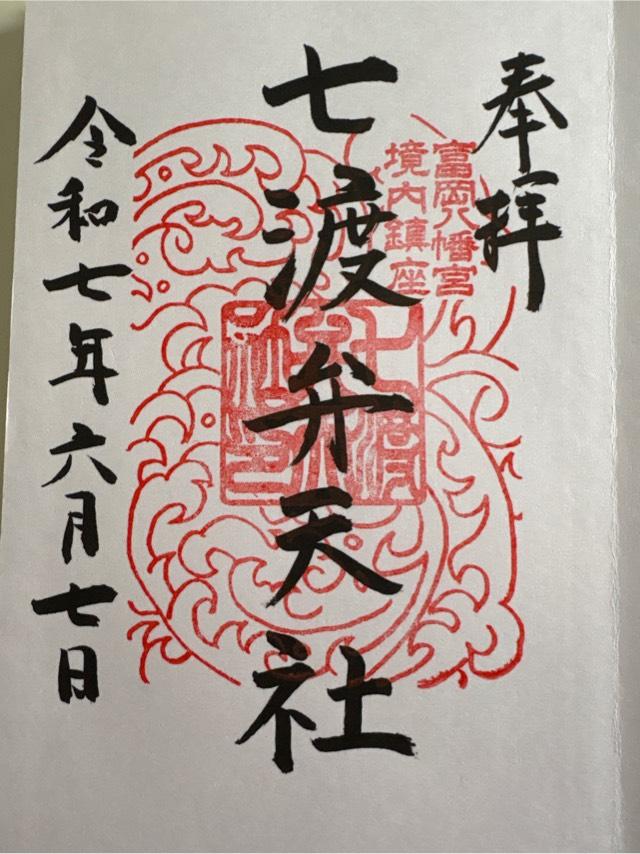 奉拝
富岡八幡宮
境内鎮座
七渡弁天社
令和七年六月七日